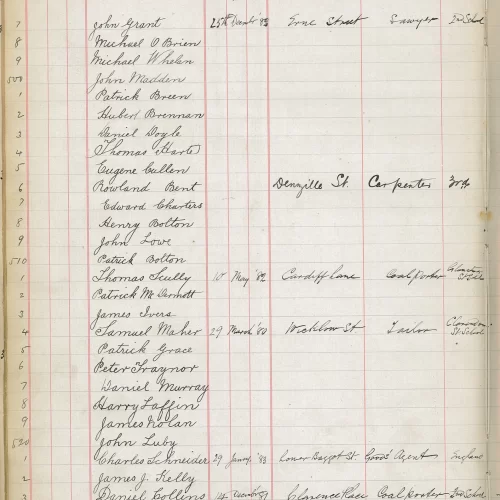 7 John Grant 25th '82 Erne Street Sawyer
8 Michael O'Brien
9 Michael Whelan
500 John Madden
1 Patrick Breen
2 Hubert Brennan
3 Daniel Doyle
4 Thomas Harte
5 Eugene Cullen
6 Rowland Bent Denzille St. Carpenter 3rd
7 Edward Charters
8 Henry Bolton
9 John Lowe
510 Patrick Bolton
1 Thomas Scully 10 May '82 Cardiff Lane Coalporter
2 Patrick McDermott
3 James Ivers
4 Samuel Maher 29 March '80 Wicklow St Tailor
5 Patrick Grace
6 Peter Traynor
7 Daniel Murray
8 Harry Laffin
9 James Nolan
520 John Luby
1 Charles Schneider 29 Jany. '83 Lower Baggot St. Goods Agent England
2 James J. Kelly
3 Daniel Collins 14 Clarence Place Coalporter